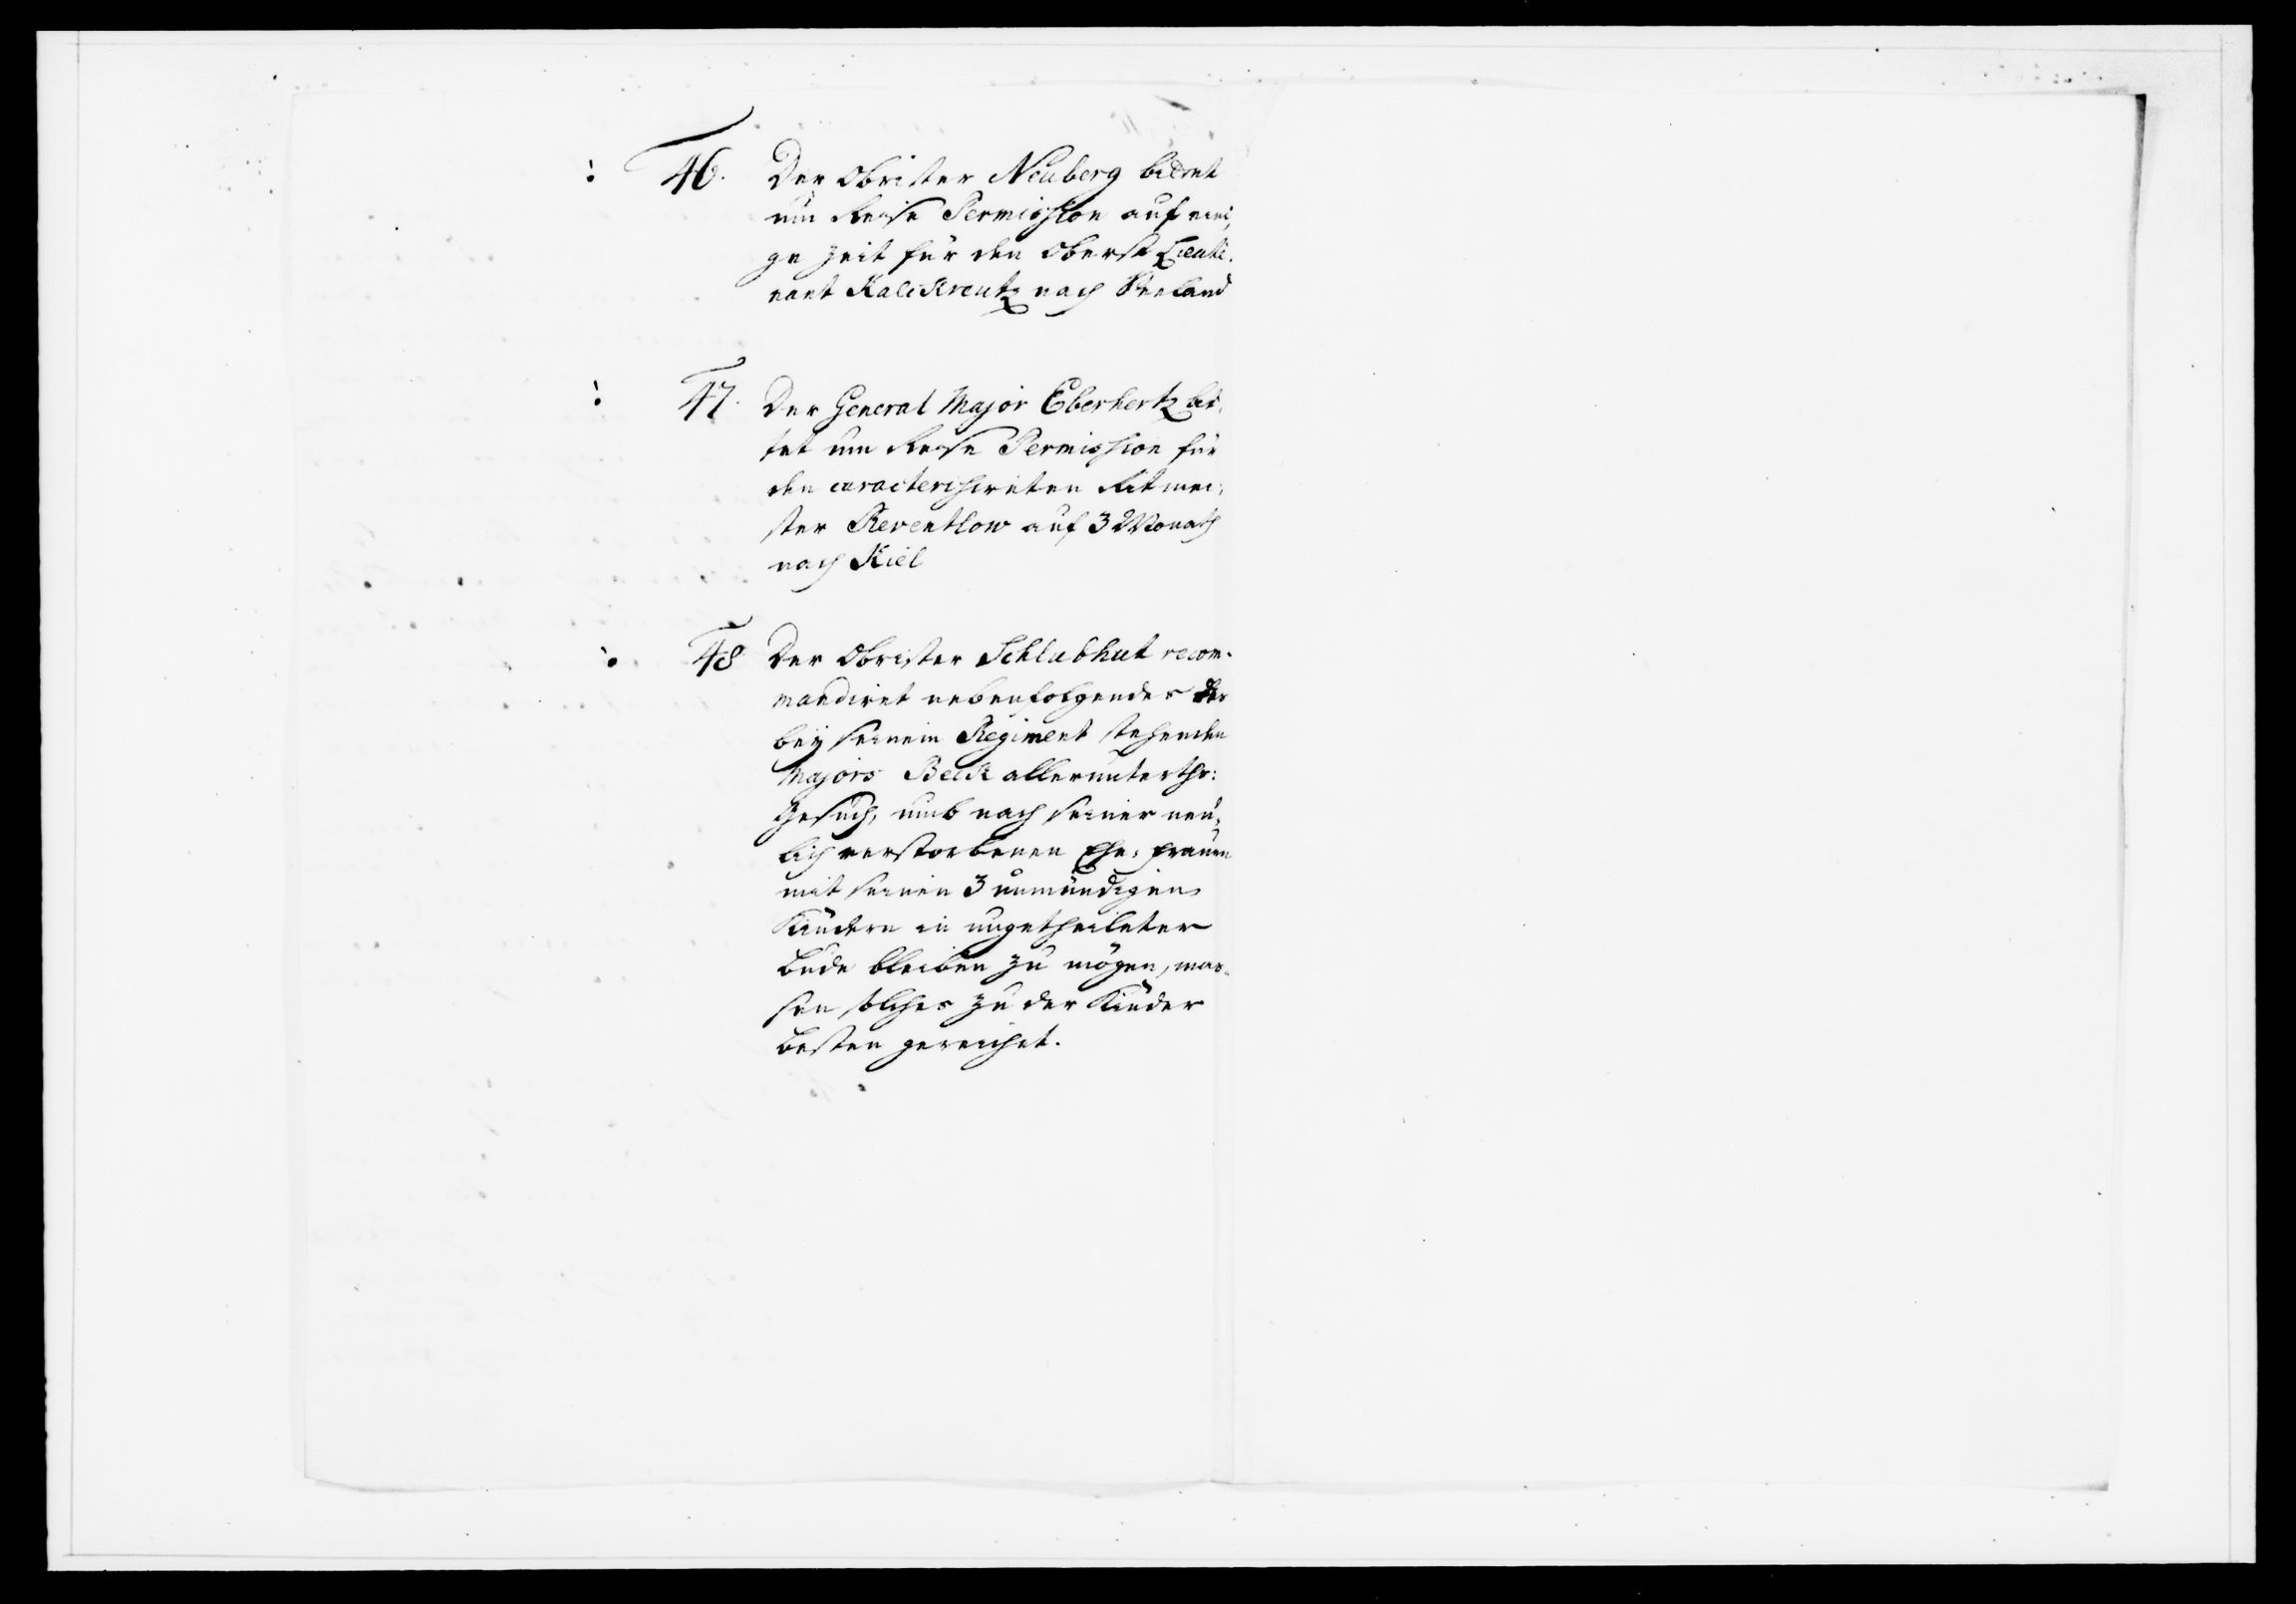 46. Der Obrister Neuberg bittet
um Reise Permission auf eini,
ge Zeit für den Oberst Lieute,
nant Kalckreutz nach Seeland
47. Der General Major Eberhertz bit,
tet um Reise Permission für
den caracterisireten Ritmei,
ster Reventlow auf 3 Monath
nach Kiel
48 Der Obrister Schlubhut recom-
mandiret nebenfolgendes des
bey seinem Regiment stehenden
Majors Beck allerunterthr:
Gesuch, umb nach seiner neu,
lich verstorbenen Ehe, Frauen
mit seinen 3 unmündigen
Kindern in ungetheileter
Bude bleiben zu mögen, mas-
sen solches zu der Kinder
besten gereichet.